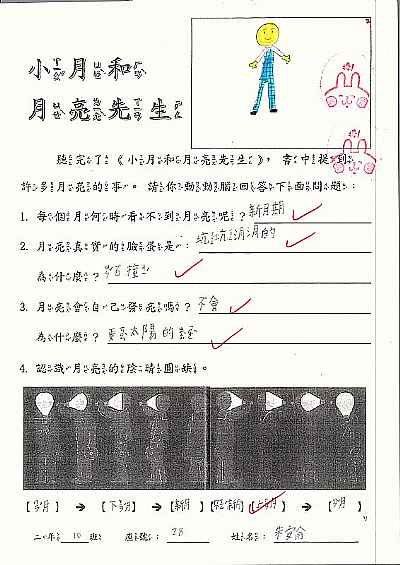 小月和
月亮先生
聽完了《小月和月亮先生》，書中提到
許多月亮的事。請你動動腦回答下面問題：
1. 每個月何時看不到月亮呢？新月期
2. 月亮真實的臉蛋是：坑坑洞洞的
為什麼？
3. 月亮會自己發亮嗎？不會
為什麼？ 太陽的
4. 認識月亮的陰晴圓缺。
【 月】→【下弦月】→【新月】【 】【上弦月】→【 月】
二年10班 座號：28 姓名：